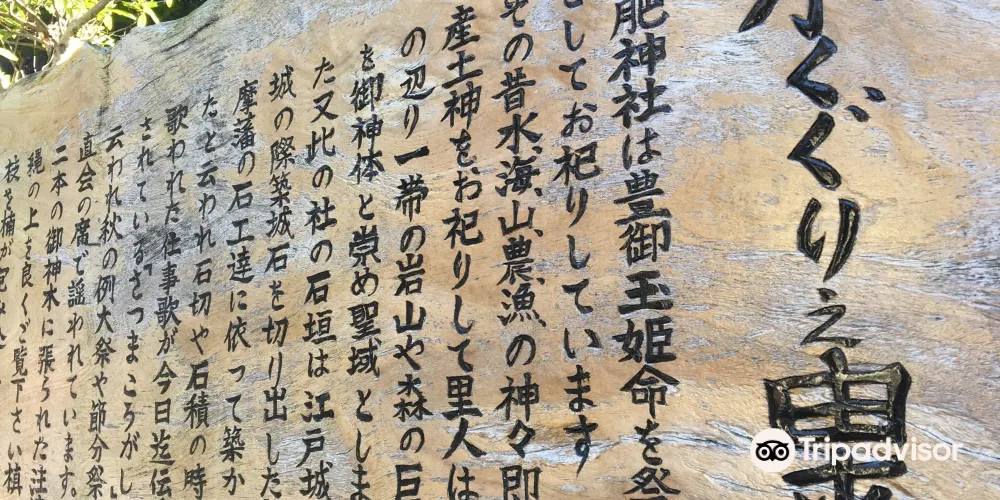 くぐり之
肥神社は豊御玉姫命を祭
としてお祀りしています
その昔水、海、山、農、漁、の神々即
産土神を、お祀りして里人は
の辺り一帯の岩山や森の巨
を御神体と崇め聖域としま
た又此の社の石垣は江戸城
城の際築城石を切り出した
摩藩の石工達に依って築か
たと云われ石切や石積の時
歌われた仕事歌が今日迄伝
されている『さつまころがし』
云われ秋の例大祭や節分祭
直会の席で謡われています。
二本の御神木に張られた注
縄の上を良くご覧下さい槙
枝を楠が
Tripadvisor